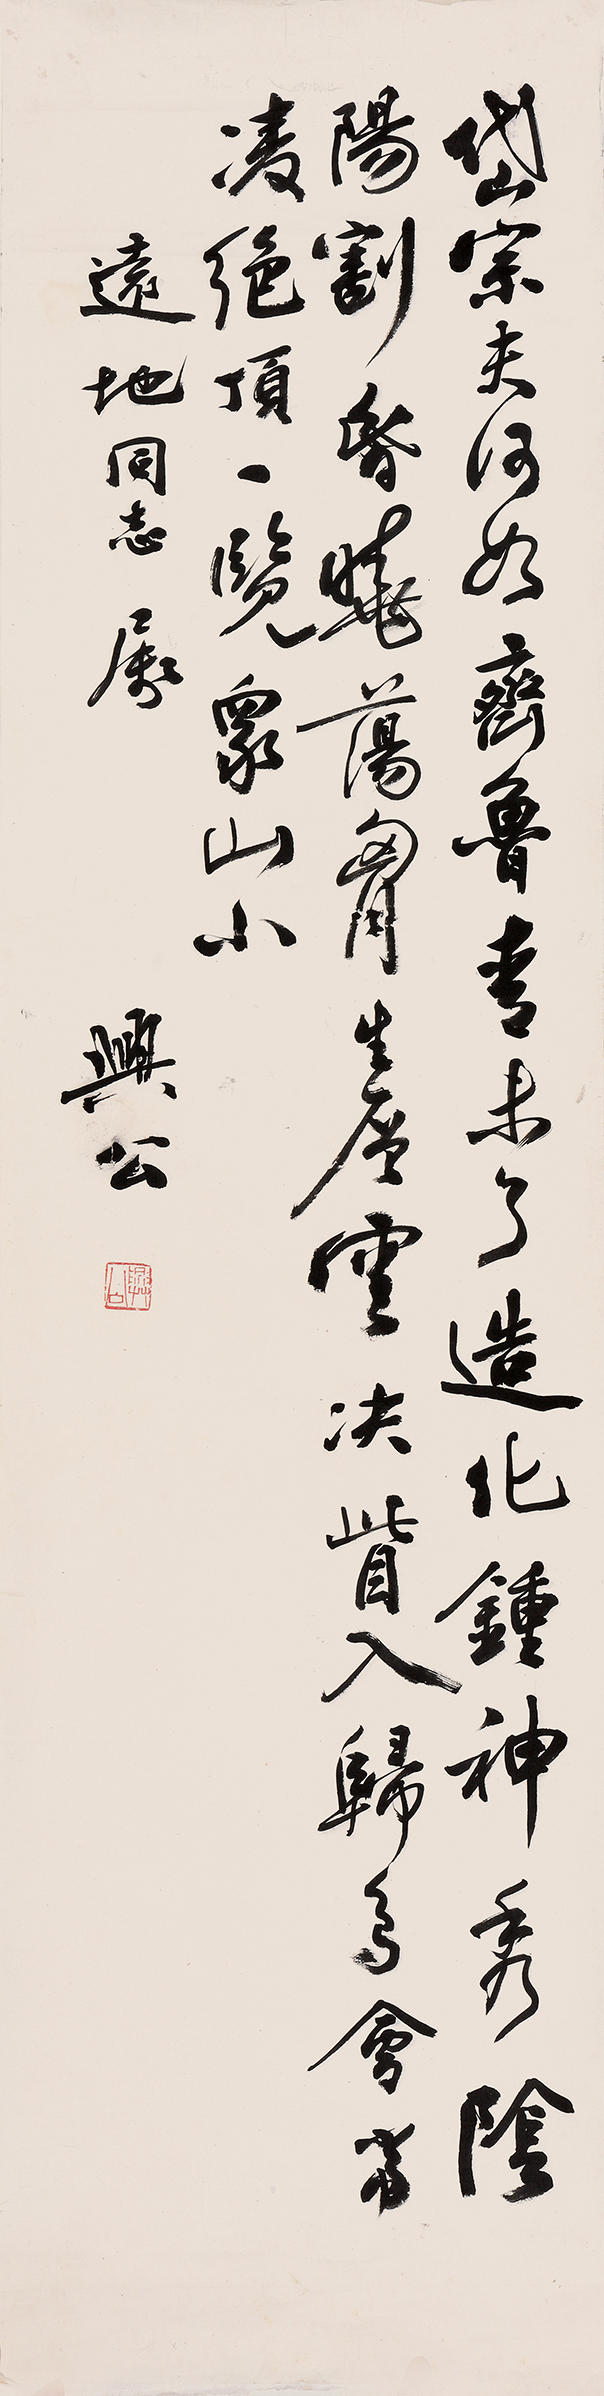 岱宗夫何如齊魯青未了造化鍾神秀陰
陽割昏曉蕩胷生層雲決眥入歸鳥會當
凌絕頂一覽衆山小
遠地同志屬
興公
興公